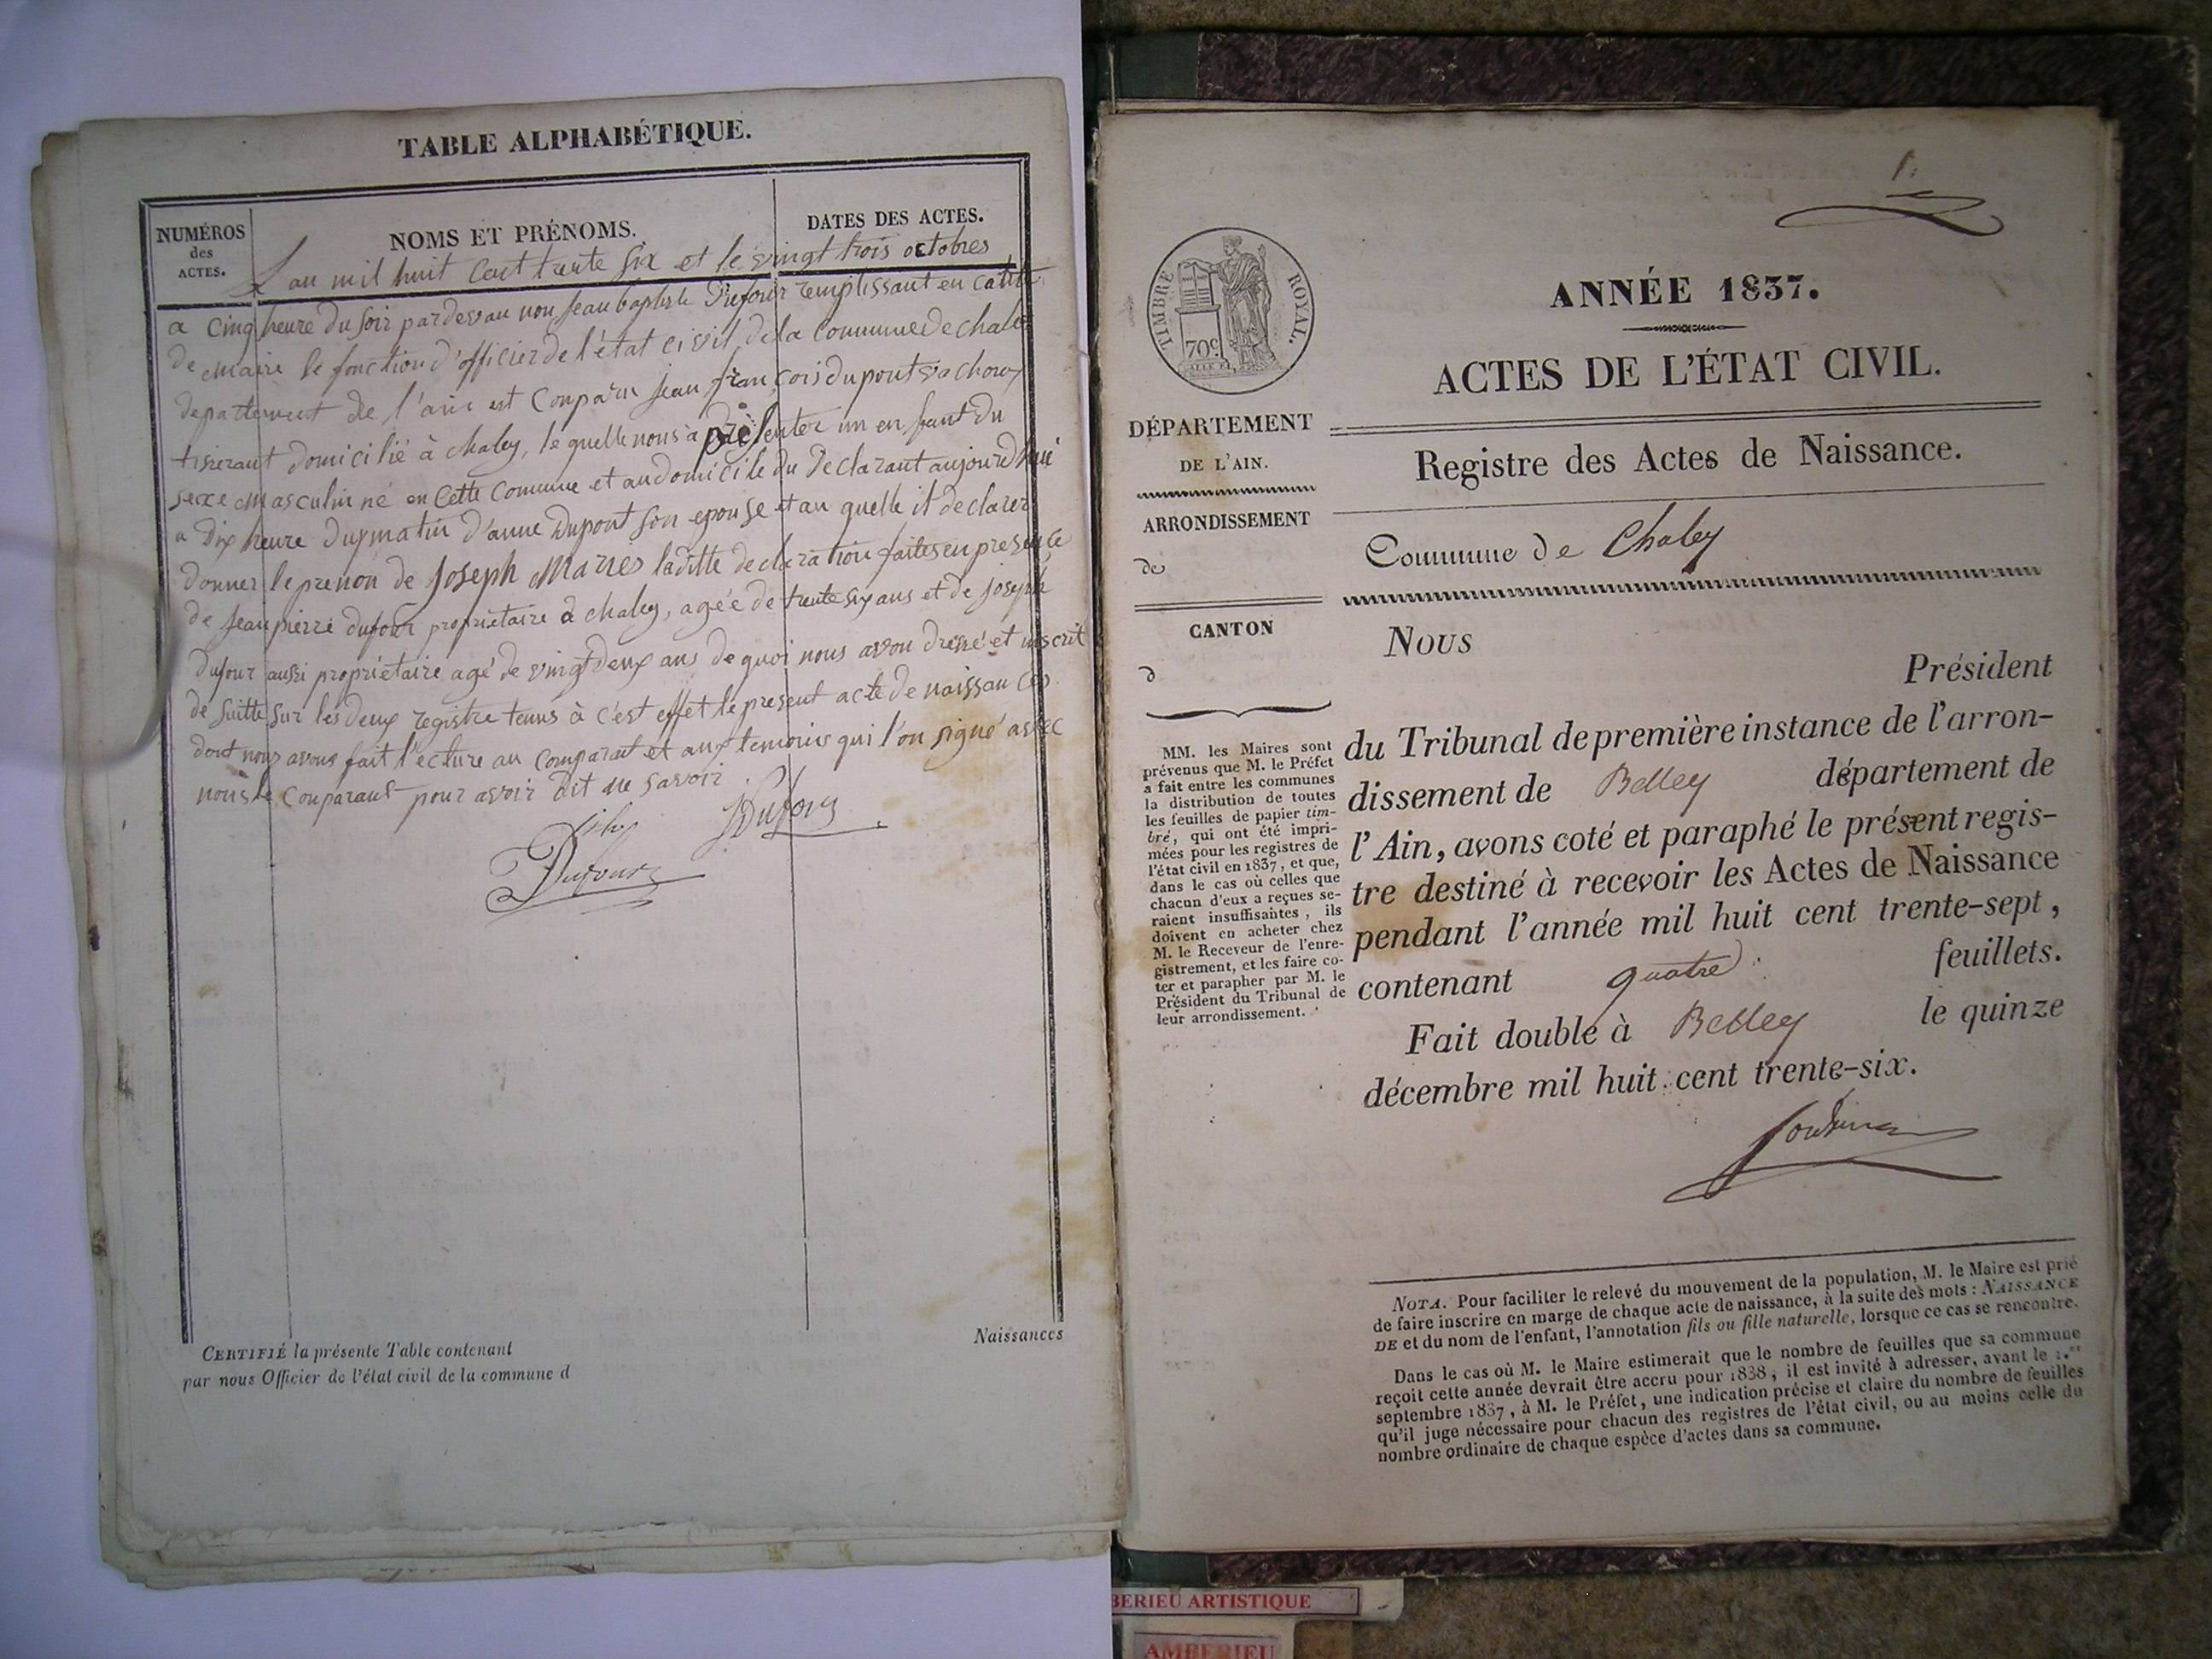 TABLE ALPHABÉTIQUE.
NUMÉROS
des
ACTES.
NOMS ET PRÉNOMS.
DATES DES ACTES.
L'an mil huit Cent trente Six et le vingt trois octobres
a cinq heure du soir pardevau nou Jean baptiste Dufour remplissant en calité
de maire le fonction d'officier de l'état civil, de la Commune de chaley
departement de l'ain est Conparu Jean françois dupont
tisserant domicilié à Chaley, le quelle nous à présenter un enfant du
sexe masculin né en Cette Commune et au domicile du Declarant aujourd'hui
a Dix heure du matin d'anne Dupont son epouse et au quelle il declarer
donner le prenon de Joseph Maries laditte declaration faites en presence
de Jean pierre dufour propriétaire à chaley, agée de trente six ans et de joseph
dufour aussi propriétaire agé de vingt deux ans de quoi nous avon dressé et inscrit
de suitte sur les deux registre tenus à c'est effet le present acte de naissances
dont nous avons fait l'ecture au Comparant et aux temoins qui l'on signé avec
nous le Conparant pour avoir dit ne savoir
JDufour
Dufour
CERTIFIÉ la présente Table contenant
Naissances
par nous Officier de l'état civil de la commune d
1.
TIMBRE ROYAL.
70c.
ANNÉE 1837.
ACTES DE L'ÉTAT CIVIL.
DÉPARTEMENT
DE L'AIN.
ARRONDISSEMENT
de
CANTON
d
MM. les Maires sont
prévenus que M. le Préfet
a fait entre les communes
la distribution de toutes
les feuilles de papier tim-
bré, qui ont été impri-
mées pour les registres de
l'état civil en 1837, et que,
dans le cas où celles que
chacun d'eux a reçues se-
raient insuffisantes, ils
doivent en acheter chez
M. le Receveur de l'enre-
gistrement, et les faire co-
ter et parapher par M. le
Président du Tribunal de
leur arrondissement.
Registre des Actes de Naissance.
Commune de Chaley
Nous
Président
du Tribunal de première instance de l'arron-
dissement de Belley département de
l'Ain, avons coté et paraphé le présent regis-
tre destiné à recevoir les Actes de Naissance
pendant l'année mil huit cent trente-sept,
contenant quatre feuillets.
Fait double à Belley le quinze
décembre mil huit cent trente-six.
NOTA. Pour faciliter le relevé du mouvement de la population, M. le Maire est prié
de faire inscrire en marge de chaque acte de naissance, à la suite des mots : NAISSANCE
DE et du nom de l'enfant, l'annotation fils ou fille naturelle, lorsque ce cas se rencontre.
Dans le cas où M. le Maire estimerait que le nombre de feuilles que sa commune
reçoit cette année devrait être accru pour 1838, il est invité à adresser, avant le 1.er
septembre 1837, à M. le Préfet, une indication précise et claire du nombre de feuilles
qu'il juge nécessaire pour chacun des registres de l'état civil, ou au moins celle du
nombre ordinaire de chaque espèce d'actes dans sa commune.
BERIEU ARTISTIQUE
AMBERIEU